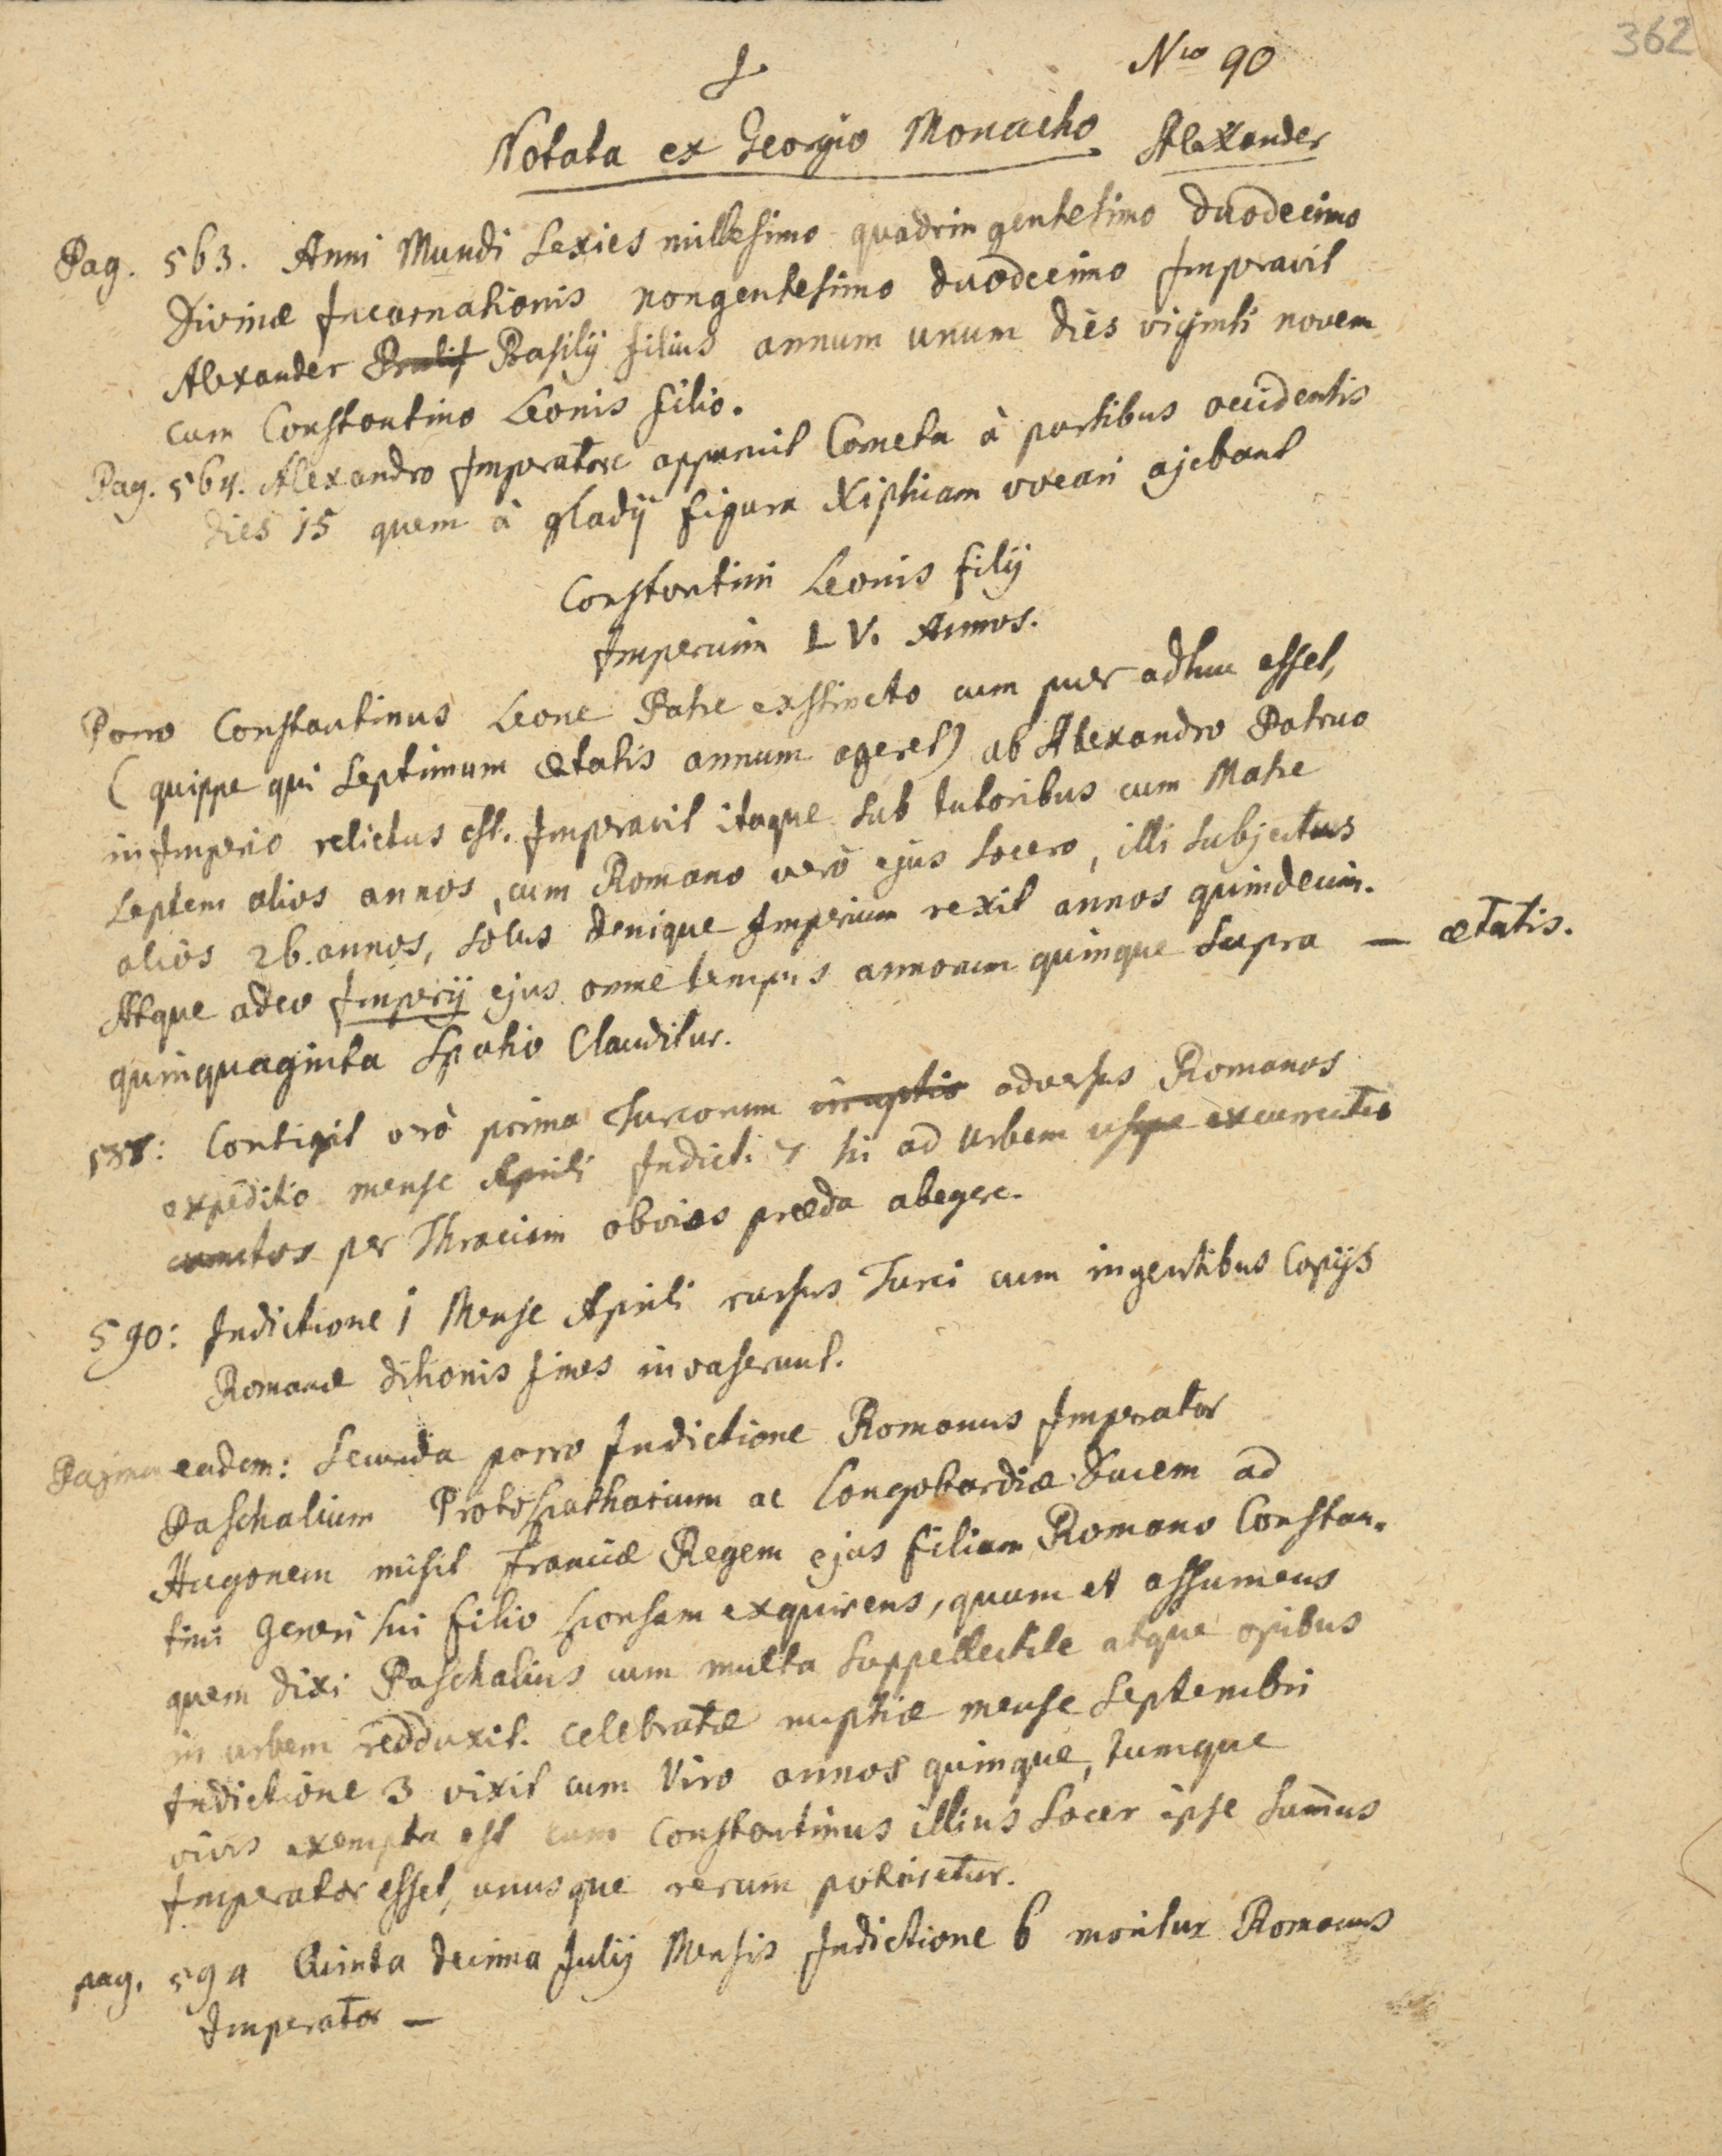 362
Nro 90
Notata ex Georgio Monacho Alexander
Pag. 563. Anni Mundi Sexies millesimo quadringentesimo duodecimo
Divinæ Incarnationis nongentesimo duodecimo Imperavit
Alexander Basilij filius annum unum dies viginti novem
cum Constantino Leonis filio.
Pag. 564. Alexandro Imperatore apparuit Cometa à partibus occidentis
dies 15 quem à gladij figura Xiphiam vocari ajebant
Constantini Leonis filij
Imperium LV. Annos.
Porro Constantinus Leone Patre exstincto cum puer adhuc esset,
(quippe qui Septimum ætatis annum ageret) ab Alexandro Patruo
in Imperio relictus est. Imperavit itaque sub tutoribus cum Matre
Septem alios annos, cum Romano verò ejus Socero, illi Subjectus
alios 26. annos, Solus denique Imperium rexit annos quindecim.
Atque adeo Imperij ejus omne tempus annorum quinque Supra — ætatis.
quinquaginta Spatio Clauditur.
588: Contigit vero prima Turcorum irruptio adversus Romanos
expeditio mense Aprili Indict. 7 hi ad Urbem usque excurrentes
cunctos per Thraciam obvios præda abegere.
590: Indictione 1 Mense Aprili rursus Turci cum ingentibus Copijs
Romanæ ditionis fines invaserunt.
Pagina eadem: Secunda porro Indictione Romanus Imperator
Paschalium Protospatharium ac Longobardiæ Ducem ad
Hugonem misit Franciæ Regem ejus filiam Romano Constan-
tini Generi sui filio sponsam exquirens, quam et assumens
quem dixi Paschalius cum multa Suppellectile atque opibus
in urbem redduxit. Celebratæ nuptiæ mense Septembri
Indictione 3 vixit cum Viro annos quinque, tumque
vivis exempta est cum Constantinus illius Socer ipse Sum̄us
Imperator esset, unusque rerum potiretur.
pag. 594 Quinta decima Julij Mensis Indictione 6 moritur Romanus
Imperator —